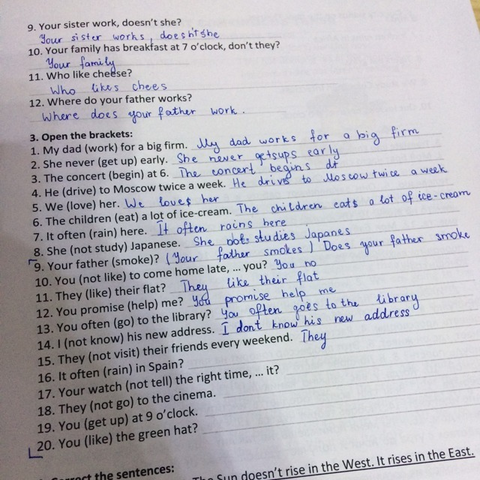 9. Your sister work, doesn't she?
Your sister works, doesn't she
10. Your family has breakfast at 7 o'clock, don't they?
Your family
11. Who like cheese?
Who likes chees
12. Where do your father works?
Where does your father work.
3. Open the brackets:
1. My dad (work) for a big firm. My dad works for a big firm
2. She never (get up) early. She never getsups early
3. The concert (begin) at 6. The concert begins at
4. He (drive) to Moscow twice a week. He drivs to Moscow twice a week
5. We (love) her. We loves her
6. The children (eat) a lot of ice-cream. The children eats a lot of ice-cream
7. It often (rain) here. It often rains here
8. She (not study) Japanese. She studies Japanes
9. Your father (smoke)? (Your father smokes) Does your father smoke
10. You (not like) to come home late, ... you? You no
11. They (like) their flat? They like their flat
12. You promise (help) me? You promise help me
13. You often (go) to the library? You often goes to the library
14. I (not know) his new address. I dont know his new address
15. They (not visit) their friends every weekend. They
16. It often (rain) in Spain?
17. Your watch (not tell) the right time, ... it?
18. They (not go) to the cinema.
19. You (get up) at 9 o'clock.
20. You (like) the green hat?
Correct the sentences:
The Sun doesn't rise in the West. It rises in the East.